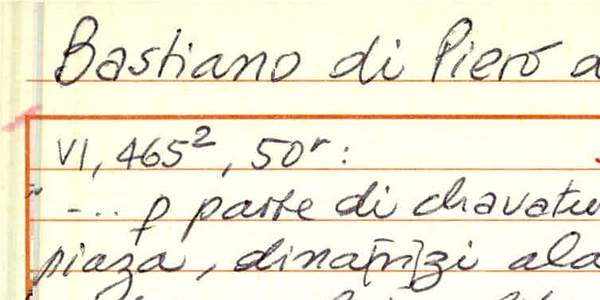 Bastiano di Piero a
VI, 465², 50ʳ:
"-... p parte di chavatu
piaza, dina[n]zi ala